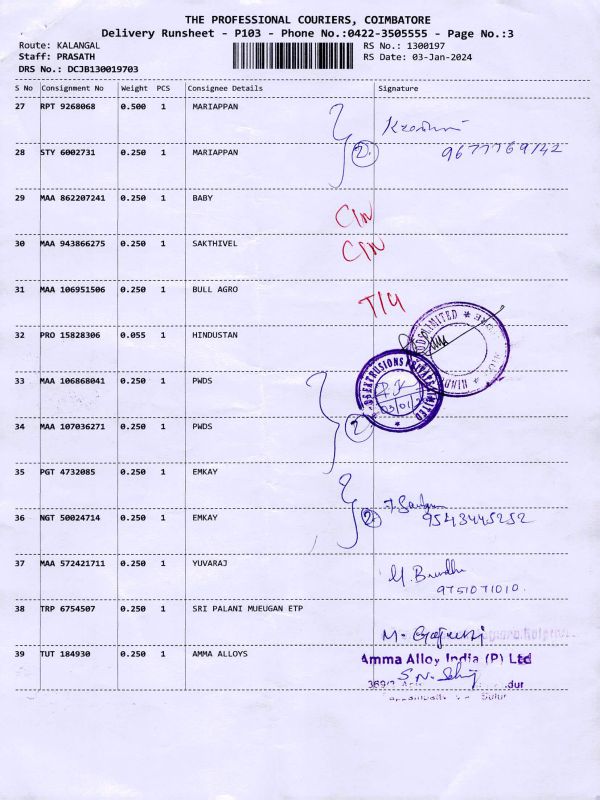 THE PROFESSIONAL COURIERS, COIMBATORE
Delivery Runsheet - P103 - Phone No.:0422-3505555 - Page No.:3
Route: KALANGAL RS No.: 1300197
Staff: PRASATH RS Date: 03-Jan-2024
DRS No.: DCJB130019703
S No Consignment No Weight PCS Consignee Details Signature
27 RPT 9268068 0.500 1 MARIAPPAN
28 STY 6002731 0.250 1 MARIAPPAN 2. 9677769142
29 MAA 862207241 0.250 1 BABY C/N
30 MAA 943866275 0.250 1 SAKTHIVEL C/N
31 MAA 106951506 0.250 1 BULL AGRO
32 PRO 15828306 0.055 1 HINDUSTAN
33 MAA 106868041 0.250 1 PWDS
34 MAA 107036271 0.250 1 PWDS 2.
35 PGT 4732085 0.250 1 EMKAY
36 NGT 50024714 0.250 1 EMKAY 2. 9543445252
37 MAA 572421711 0.250 1 YUVARAJ
9751071010.
38 TRP 6754507 0.250 1 SRI PALANI MUEUGAN ETP
39 TUT 184930 0.250 1 AMMA ALLOYS
Amma Alloy India (P) Ltd